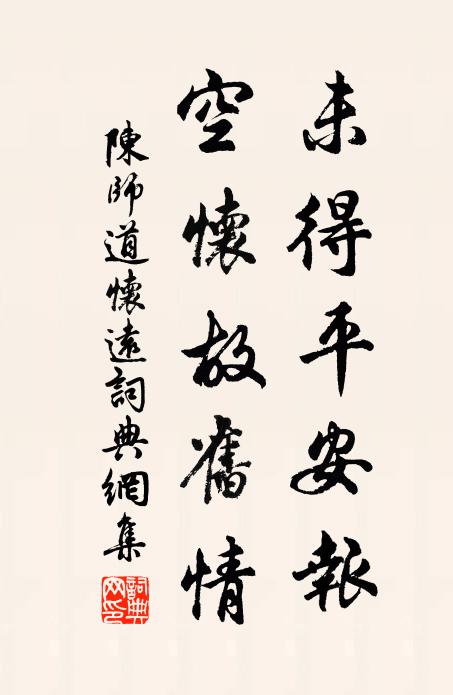 未得平安報
空懷故舊情
陳師道懷遠詞典網集
詞典網印